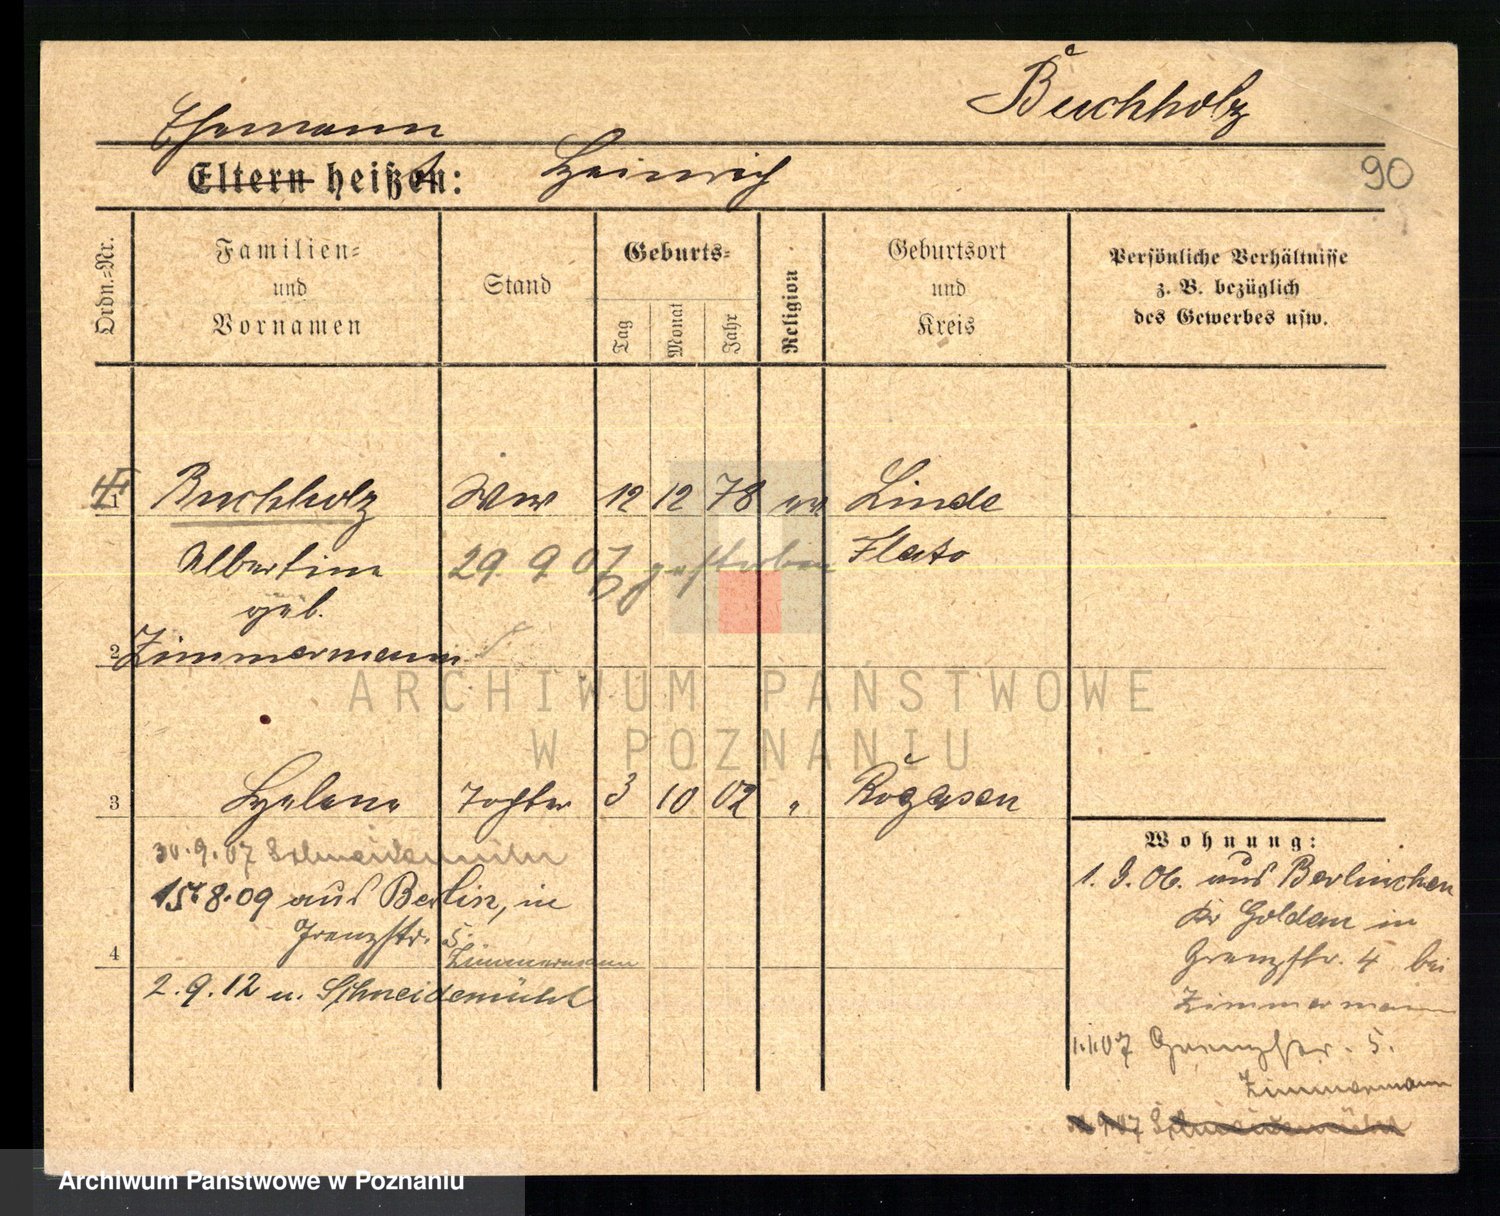 Buchholz
Ehemann
Eltern heißen: Heinrich
90
Ordn.-Nr.
Familien-
und
Vornamen
Stand
Geburts-
Tag
Monat
Jahr
Religion
Geburtsort
und
Kreis
Persönliche Verhältnisse
z. B. bezüglich
des Gewerbes usw.
1 Buchholz Ww 12 12 78 ev Linde
Albertine 29. 9. 07 gestorben Flato
geb.
2 Zimmermann
ARCHIWUM PAŃSTWOWE
W POZNANIU
3 Helene Tochter 3 10 02 " Rogasen
30.9.07 Schneidemühl
15.8.09 aus Berlin, in
Grenzstr. 5.
Zimmermann
4
2.9.12 n. Schneidemühl
Wohnung:
1. 9. 06. aus Berlinchen
Kr Goldam in
Grenzstr. 4 bei
Zimmermann
1.1.07 Grenzstr. 5.
Zimmermann
30.9.07 Schneidemühl
Archiwum Państwowe w Poznaniu